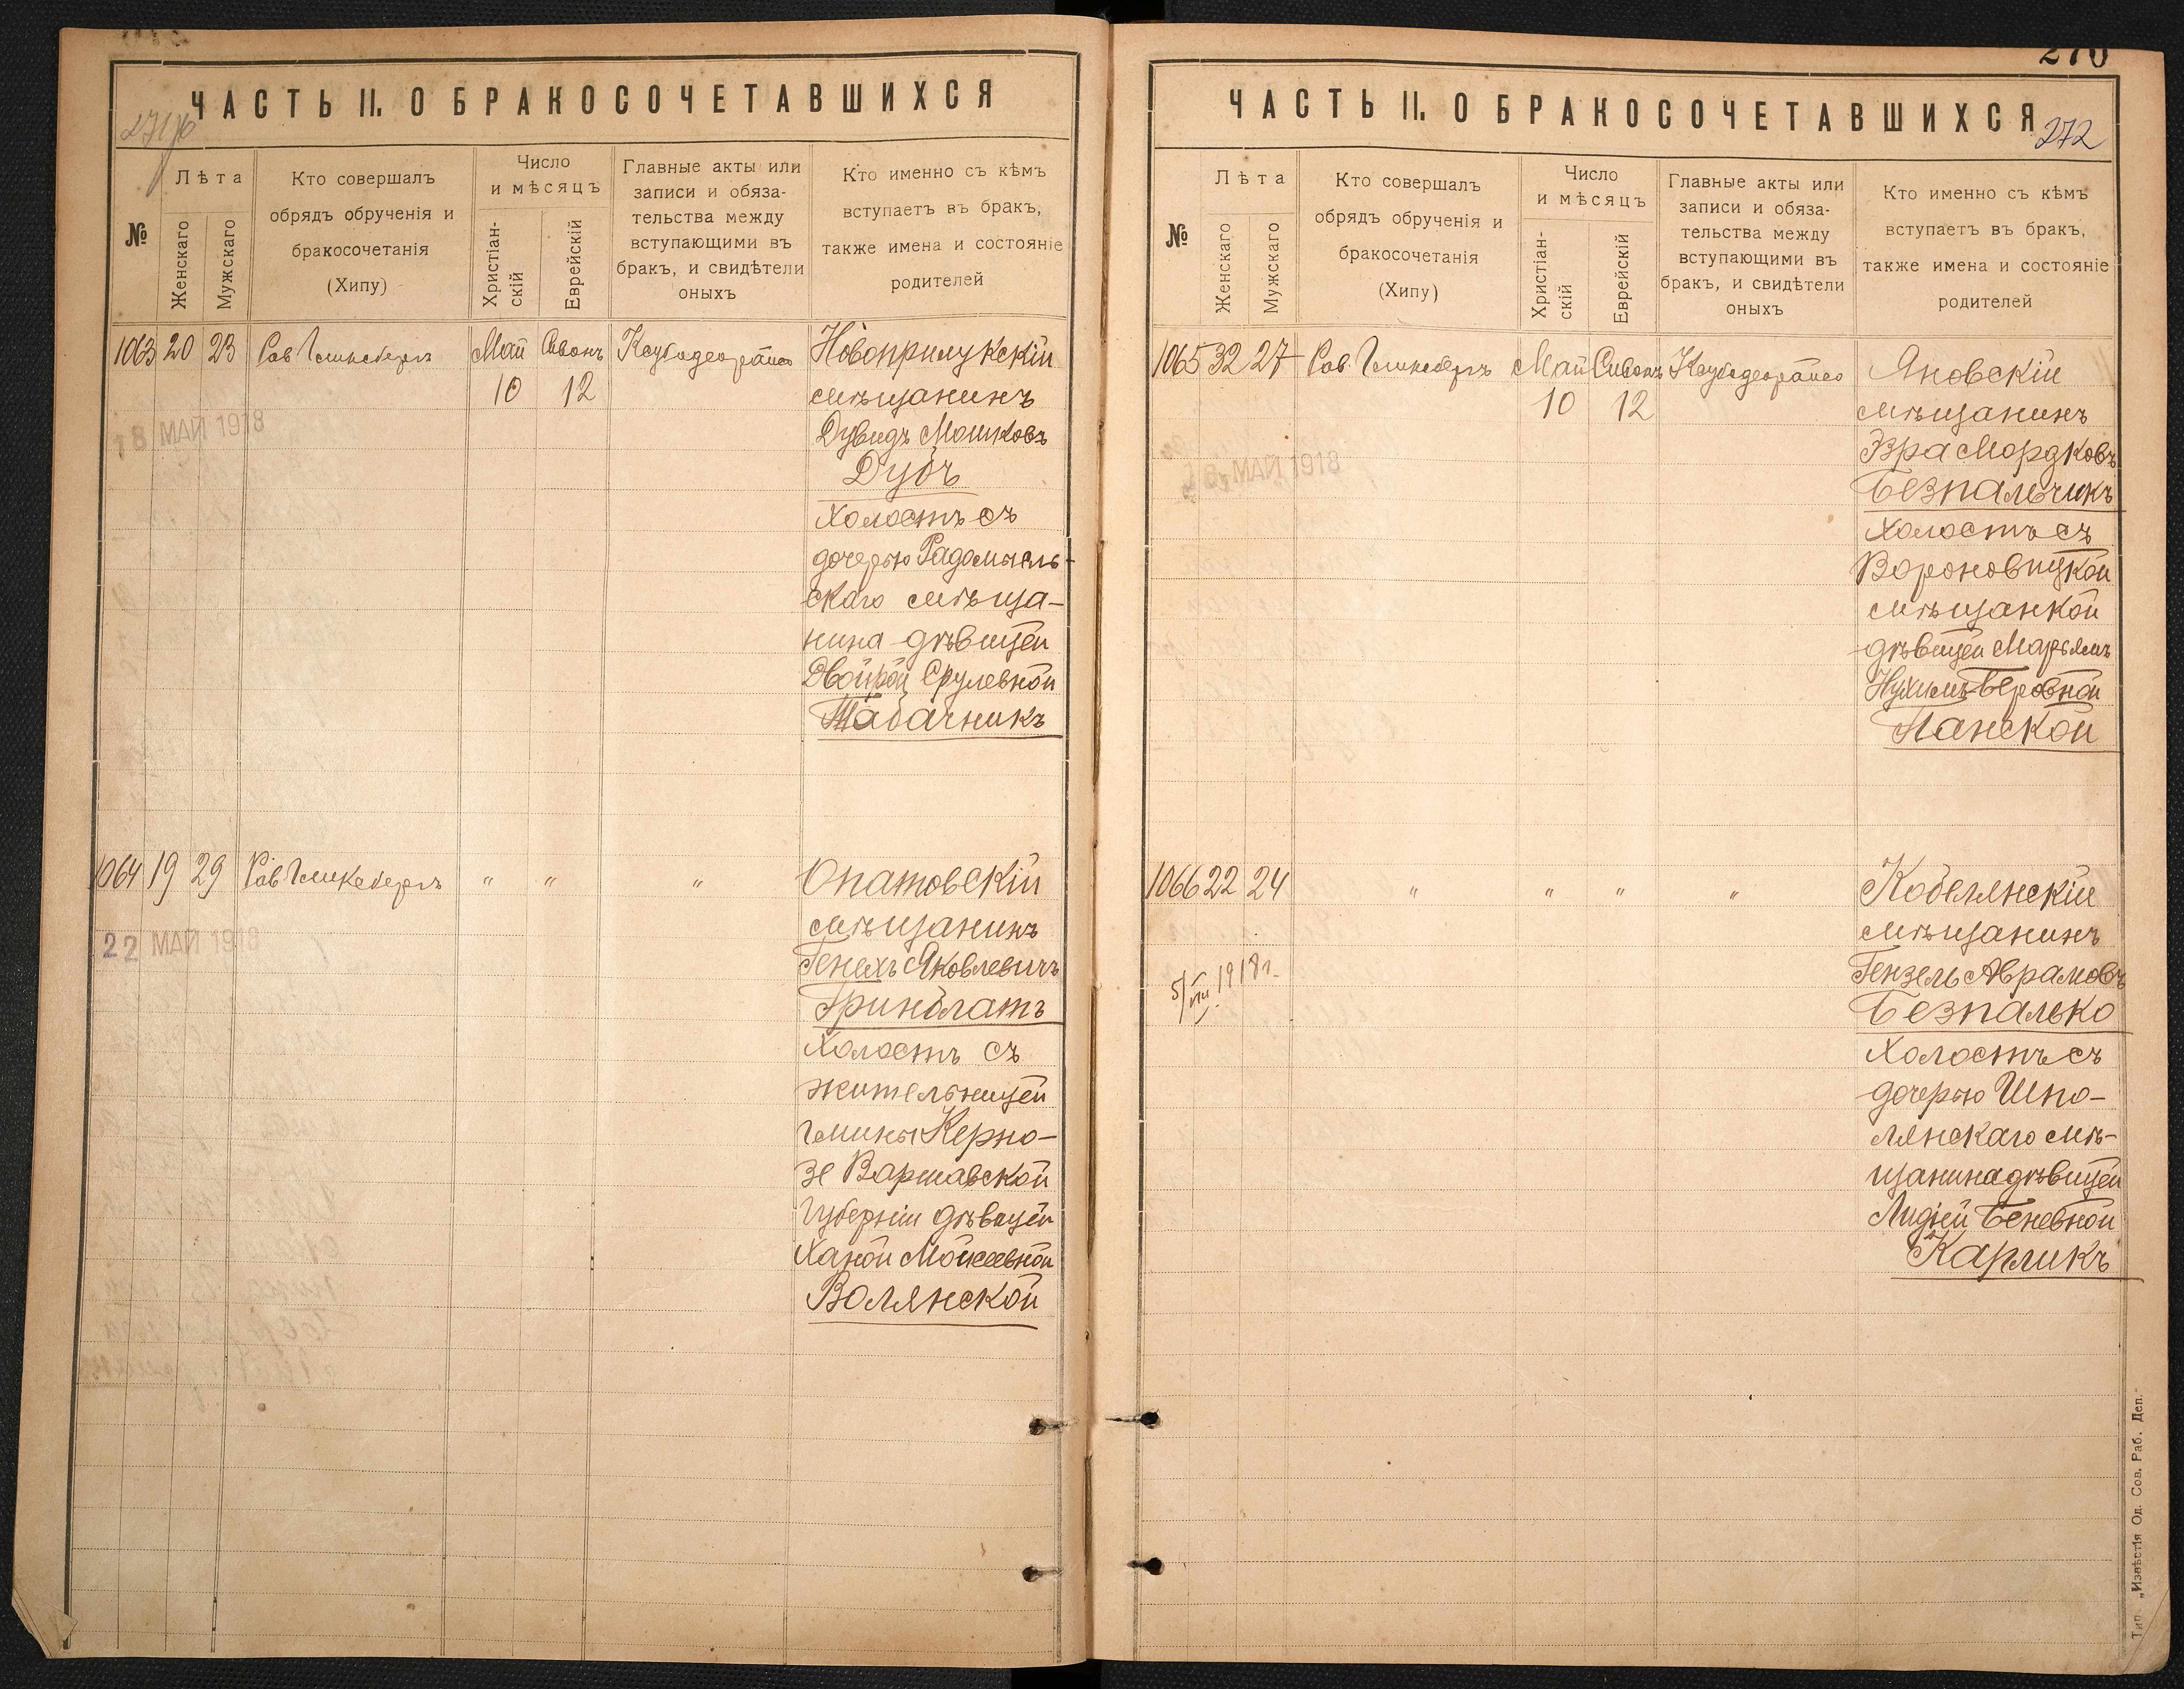 ЧАСТЬ II. О БРАКОСОЧЕТАВШИХСЯ
№
Лѣта
Женскаго
Мужскаго
Кто совершалъ
обрядъ обрученія и
бракосочетанія
(Хипу)
Число
и мѣсяцъ
Христіан-
скій
Еврейскій
Главные акты или
записи и обяза-
тельства между
вступающими въ
бракъ, и свидѣтели
оныхъ
Кто именно съ кѣмъ
вступаетъ въ бракъ,
также имена и состояніе
родителей
1063 20 23 Рав Гликсбергъ Май Сивонъ
10 12
18 МАЙ 1918
Новоприлукскій
мѣщанинъ
Дувидъ Мошковъ
Дубъ
Холостъ съ
дочерью Радомысль-
скаго мѣща-
нина дѣвицей
Двойрой Срулевной
Табачникъ
1064 19 29 Рав Гликсбергъ " " "
22 МАЙ 1918
Опатовскій
мѣщанинъ
Генехъ Яковлевичъ
Гринблатъ
Холостъ съ
жительницей
Гмины Керно-
зе Варшавской
Губерніи дѣвицей
Ханой Мойсеевной
Волянской
270
ЧАСТЬ II. О БРАКОСОЧЕТАВШИХСЯ
272
№
Лѣта
Женскаго
Мужскаго
Кто совершалъ
обрядъ обрученія и
бракосочетанія
(Хипу)
Число
и мѣсяцъ
Христіан-
скій
Еврейскій
Главные акты или
записи и обяза-
тельства между
вступающими въ
бракъ, и свидѣтели
оныхъ
Кто именно съ кѣмъ
вступаетъ въ бракъ,
также имена и состояніе
родителей
1065 32 27 Рав Гликсбергъ Май Сивонъ
10 12
МАЙ 1918
Яновскій
мѣщанинъ
Эзра Мордковъ
Безпальчикъ
Холостъ съ
Вороновицкой
мѣщанкой
дѣвицей Марьямъ
Нухимъ-Беровной
Ланской
1066 22 24 " " " "
5/VII 1918 г.
Кобелянскій
мѣщанинъ
Гензель Аврамовъ
Безпалько
Холостъ съ
дочерью Шпо-
лянскаго мѣ-
щанина дѣвицей
Лидіей Беневной
Карликъ
Тип. „Извѣстія Од. Сов. Раб. Деп."